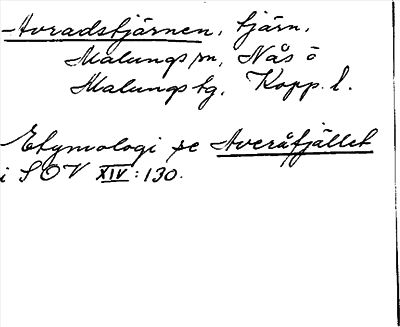 Avradstjärnen, tjärn.
Malungs sn, Nås ö
Malungs tg, Kopp. l.
Etymologi se Averåfjället
i SOV XIV:130.